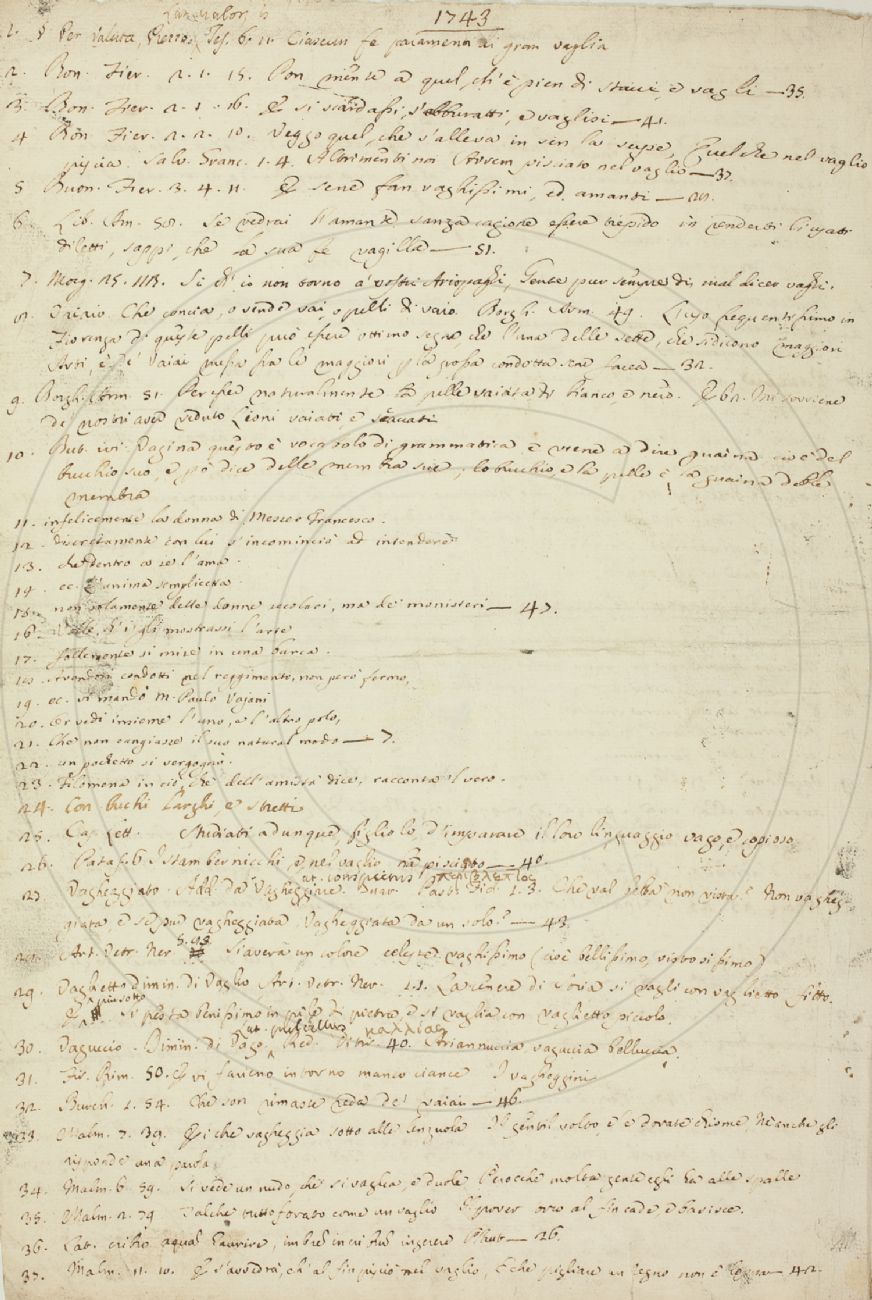 1743
Lat. valor, is
1. § Per Valuta, Prezzo. Tes. 6. 11. Ciascun fe paramenti di gran vaglia
2. Bon. Fier. 2. 1. 15. Pon mente a quel, ch'è pien di stacci, e vagli — 35.
3. Bon. Fier. 2. 1. 16. E si scardassi, s'abburatti, e vaglisi — 41.
4 Bon. Fier. 2. 2. 10. Veggo quel, che s'alleva in sen la serpe, Quel che nel vaglio
piscia. Salv. Granc. 1. 4. Altrimenti noi Avrem pisciato nel vaglio — 37.
5 Buon. Fier. 3. 4. 11. E sene fan vaghissimi, ed amanti
6. Lib. Am. 58. Se vedrai l'amante sanza cagione essere trepido in renderti li usati
diletti, sappi, che la sua fe vagilla — 51.
7. Morg. 25. 111. Sì ch'io non torno a' vostri Ariopaghi, Gente pur sempre di mal dicer vaghi.
8. Vaiaio. Che concia, o vende vai, o pelli di vaio. Borgh. Arm. 49. L'uso frequentissimo in
Fiorenza di queste pelli può essere ottimo segno che l'una delle sette, che si dicono maggiori
Arti, è de' Vaiai messa fra le maggiori per la grossa condotta sene facea — 32.
9. Borgh. Arm. 51. Perchè naturalmente la pelle vaiata di bianco e nero. E 62. Mi sovviene
da' nostri avere veduto Lioni vaiati, e scaccati
10. But. ivi. Vagina questo è vocabolo di grammatica e viene a dire guaina cioè del
bucchio suo, e però dice delle membra sue, lo bucchio, e la pelle è la guaina delle
membra
11. infelicemente la donna di Messer Francesco.
12. discretamente con lui s'incominciò ad intendere
13. che dentro a se l'ama.
14. ec. L'anima semplicetta
15. non solamente delle donne secolari, ma de' monisteri — 47.
16. Volle, ch'i' gli mostrassi l'arte
17. follemente si mise in una barca.
18. Avendosi condotti nel reggimento, non però fermo,
19. ec. vi mandò M. Paulo Vajani
20. Or vedi insieme l'uno, e l'altro polo,
21. Che non cangiasse il suo natural modo — 7.
22. un pochetto si vergognò.
23. Filomena in ciò, che dell'amistà dice, racconta 'l vero.
24. Con buchi larghi, e stretti
25. Cap. Lett. Studiati adunque, figliolo, d'imparare il loro linguaggio vago, e copioso
26. Pataf. 6 I stambernicchi, e nel vaglio ha pisciato — 40.
27 Vagheggiato. Add. da Vagheggiare. Lat. conspicuus περίβλεπτος Guar. Past. Fid. 1. 3. Che val beltà non vista? Non vagheg-
giata, e se pur vagheggiata, Vagheggiata da un solo? — 43.
28. Art. Vetr. Ner. 5. 93 Si averà un colore celeste vaghissimo (cioè bellissimo, vistosissimo)
29. Vaglietto dimin. di Vaglio. Art. Vetr. Ner. 1. 1. La cenere di Soria si vagli con vaglietto fitto.
E più sotto Si pesta benissimo in pile di pietra, e si vaglia con vaglietto piccolo.
30. Vaguccio. Dimin. di Vago. Lat. pulchellus καλλίας Red. Ditir. 40. Ariannuccia vaguccia belluccia.
31. Fir. Rim. 50. E vi farieno intorno manco ciance I vagheggini
32. Burch. 1. 54. Che son rimaste reda de' vaiai — 46.
33. Malm. 7. 39. Psiche vagheggia sotto alle lenzuola Il gentil volto, e le dorate chiome, Nè anche gli
risponde una parola
34. Malm. 6. 59. Si vede un nudo, che si vaglia, e duole Perocchè molta gente egli ha alle spalle
35. Malm. 2. 79 Talchè tutto forato come un vaglio Il pover orco al fin cade, e basisce.
36. Lat. cribro aquam haurire, imbrem in cribrum ingerere Plaut. — 26.
37. Malm. 11. 10. E s'avvedrà, ch'al fin pisciò nel vaglio, E che pigliare un regno non è loppa — 42.